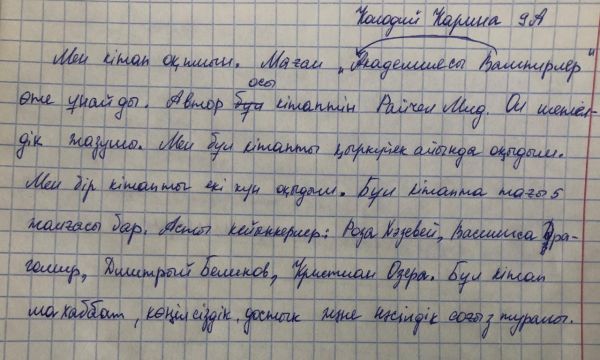 Холодий Карина 9А
Мен кітап оқимын. Маған „Академиясы Вампирлер"
өте ұнайды. Автор осы кітаптін Райчел Мид. Ол шетел-
дік жазушы. Мен бұл кітапты қыркүйек айында оқыдым.
Мен бір кітапты екі күн оқыдым. Бұл кітапта тағы 5
жалғасы бар. Асты кейіпкерлер: Роза Хэзевей, Василиса Дра-
гомир, Дмитрый Беликов, Кристиан Озера. Бұл кітап
махаббат, көңілсіздік, достық және туралы.